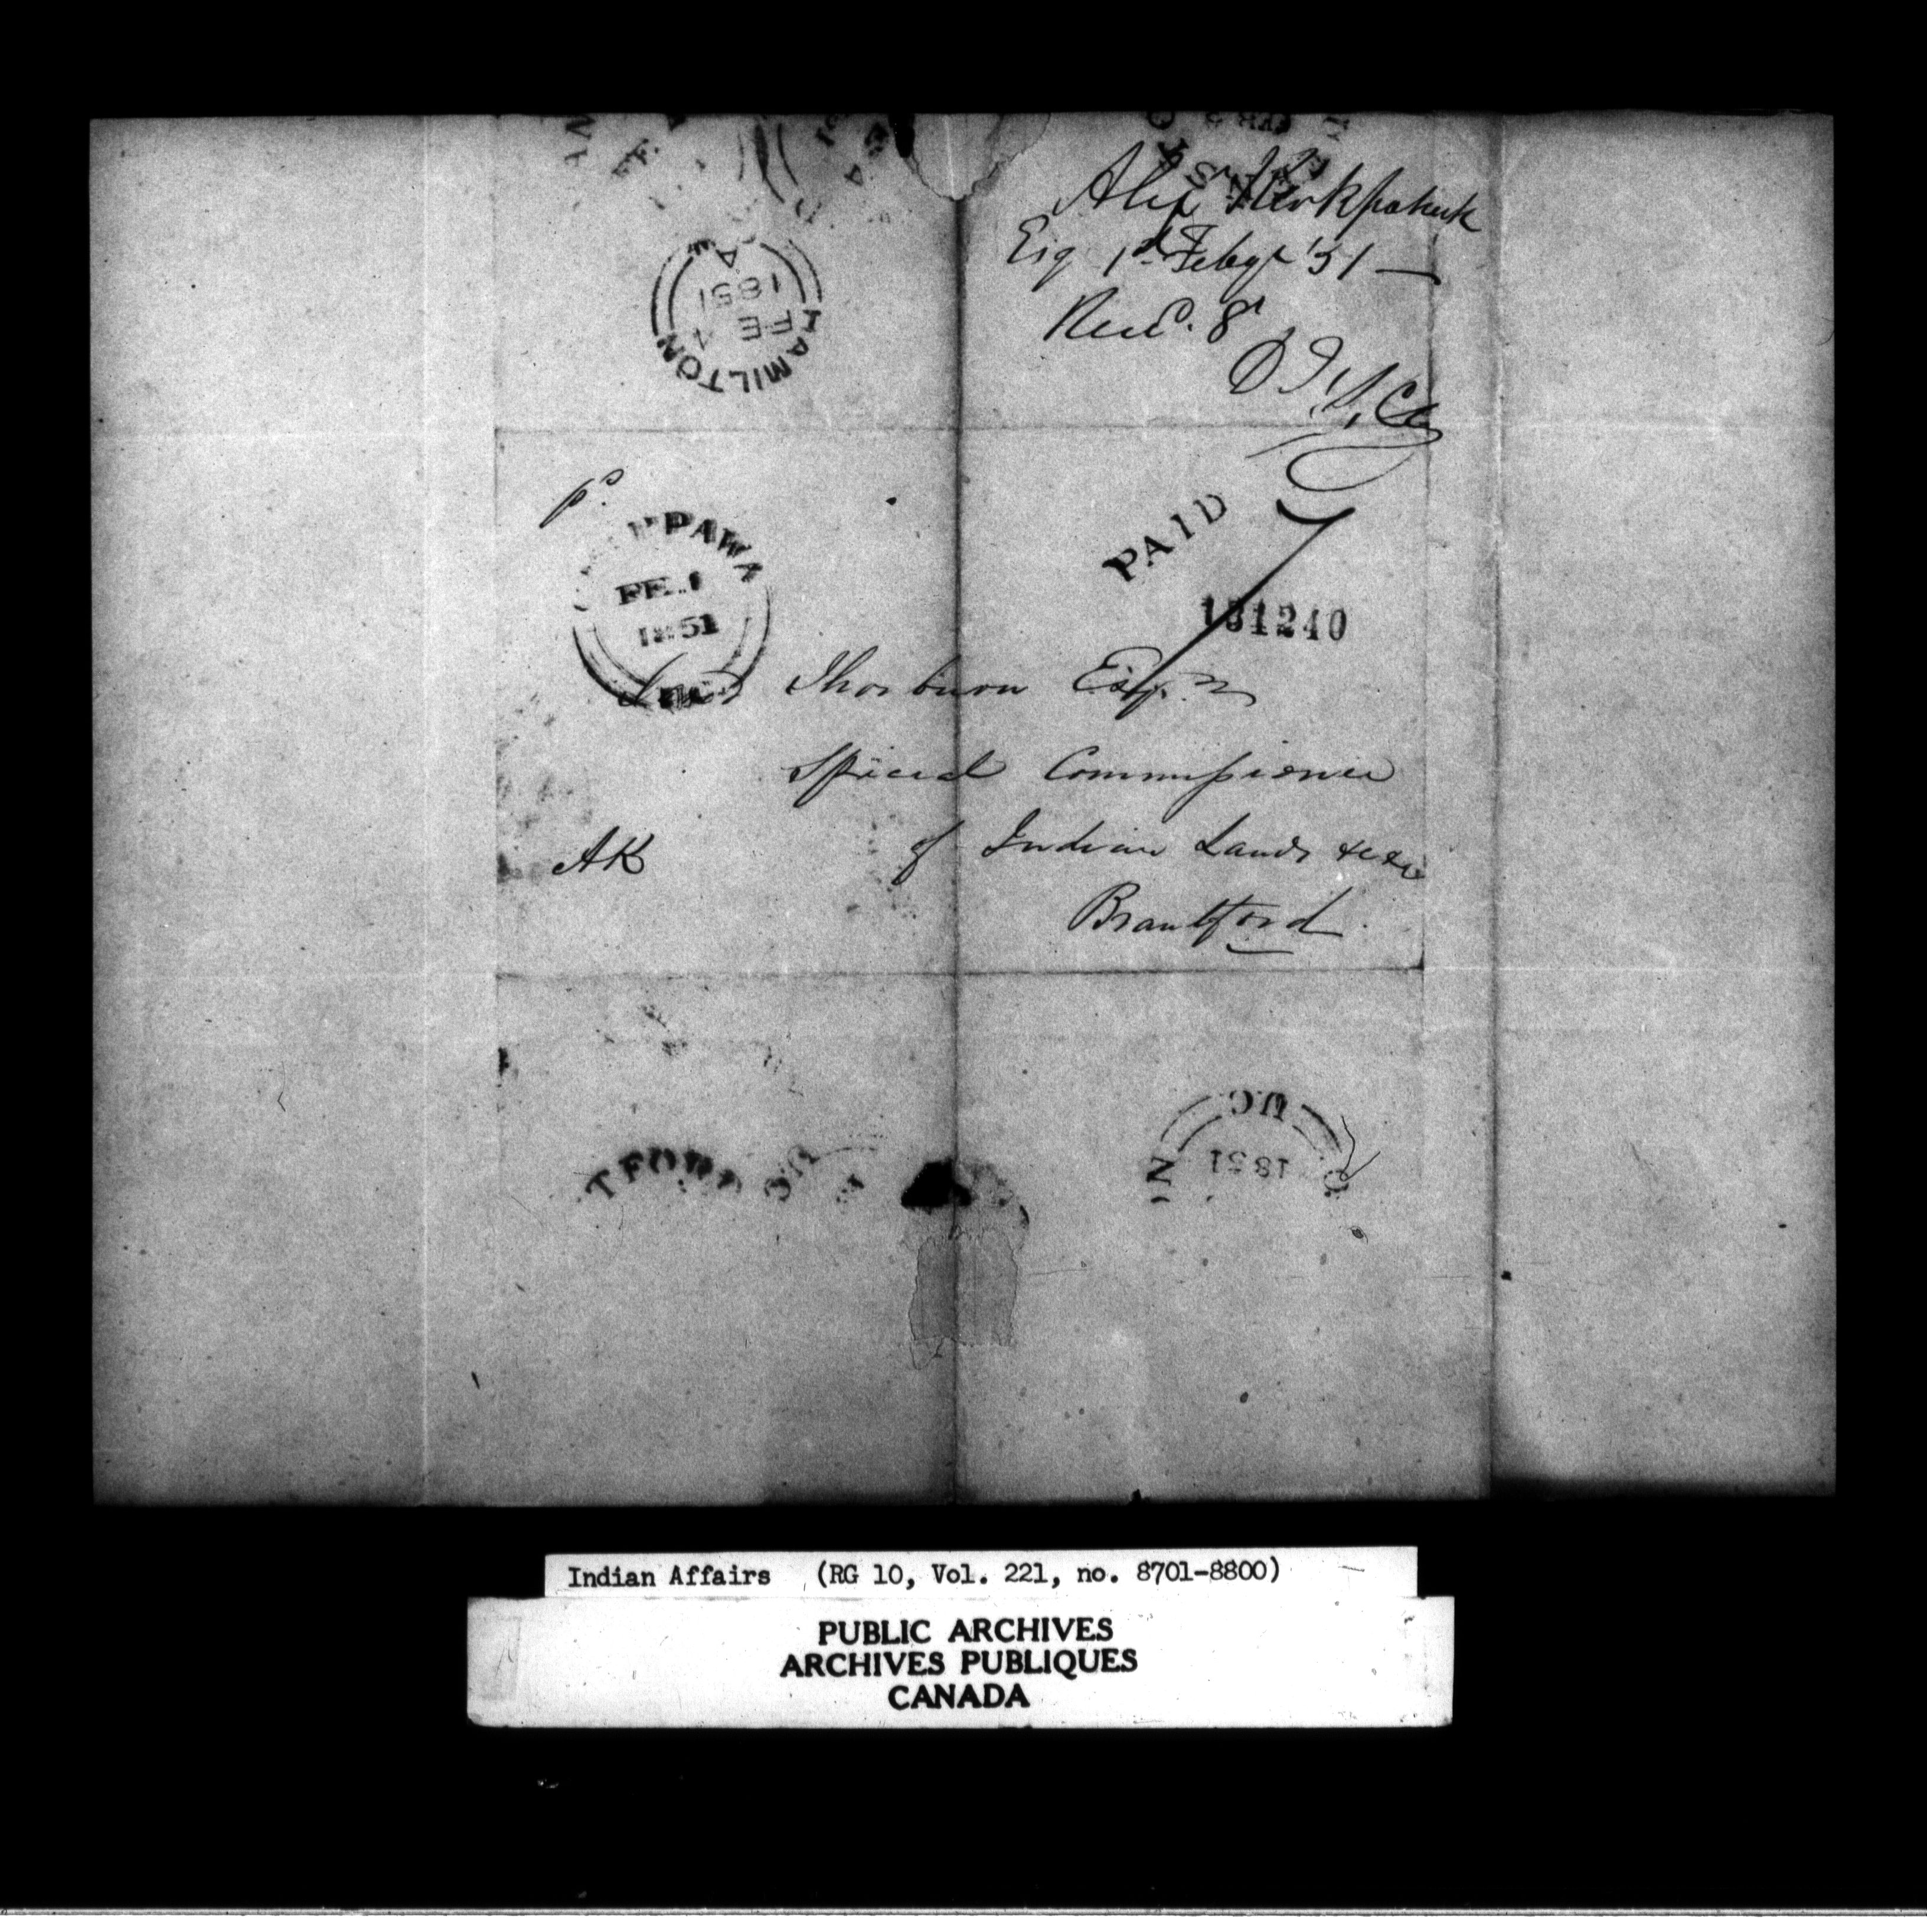 Alexr Kirkpatrick
Esq 1st Feby '51 —
Recd. 8
HAMILTON
FE 4
1851
pd.
PAWA
1851
PAID
7
131240
Thorburn Esqr
Special Commissioner
AK of Indian Lands &c &c
Brantford
U.C
1851
TFORD
Indian Affairs (RG 10, Vol. 221, no. 8701-8800)
PUBLIC ARCHIVES
ARCHIVES PUBLIQUES
CANADA